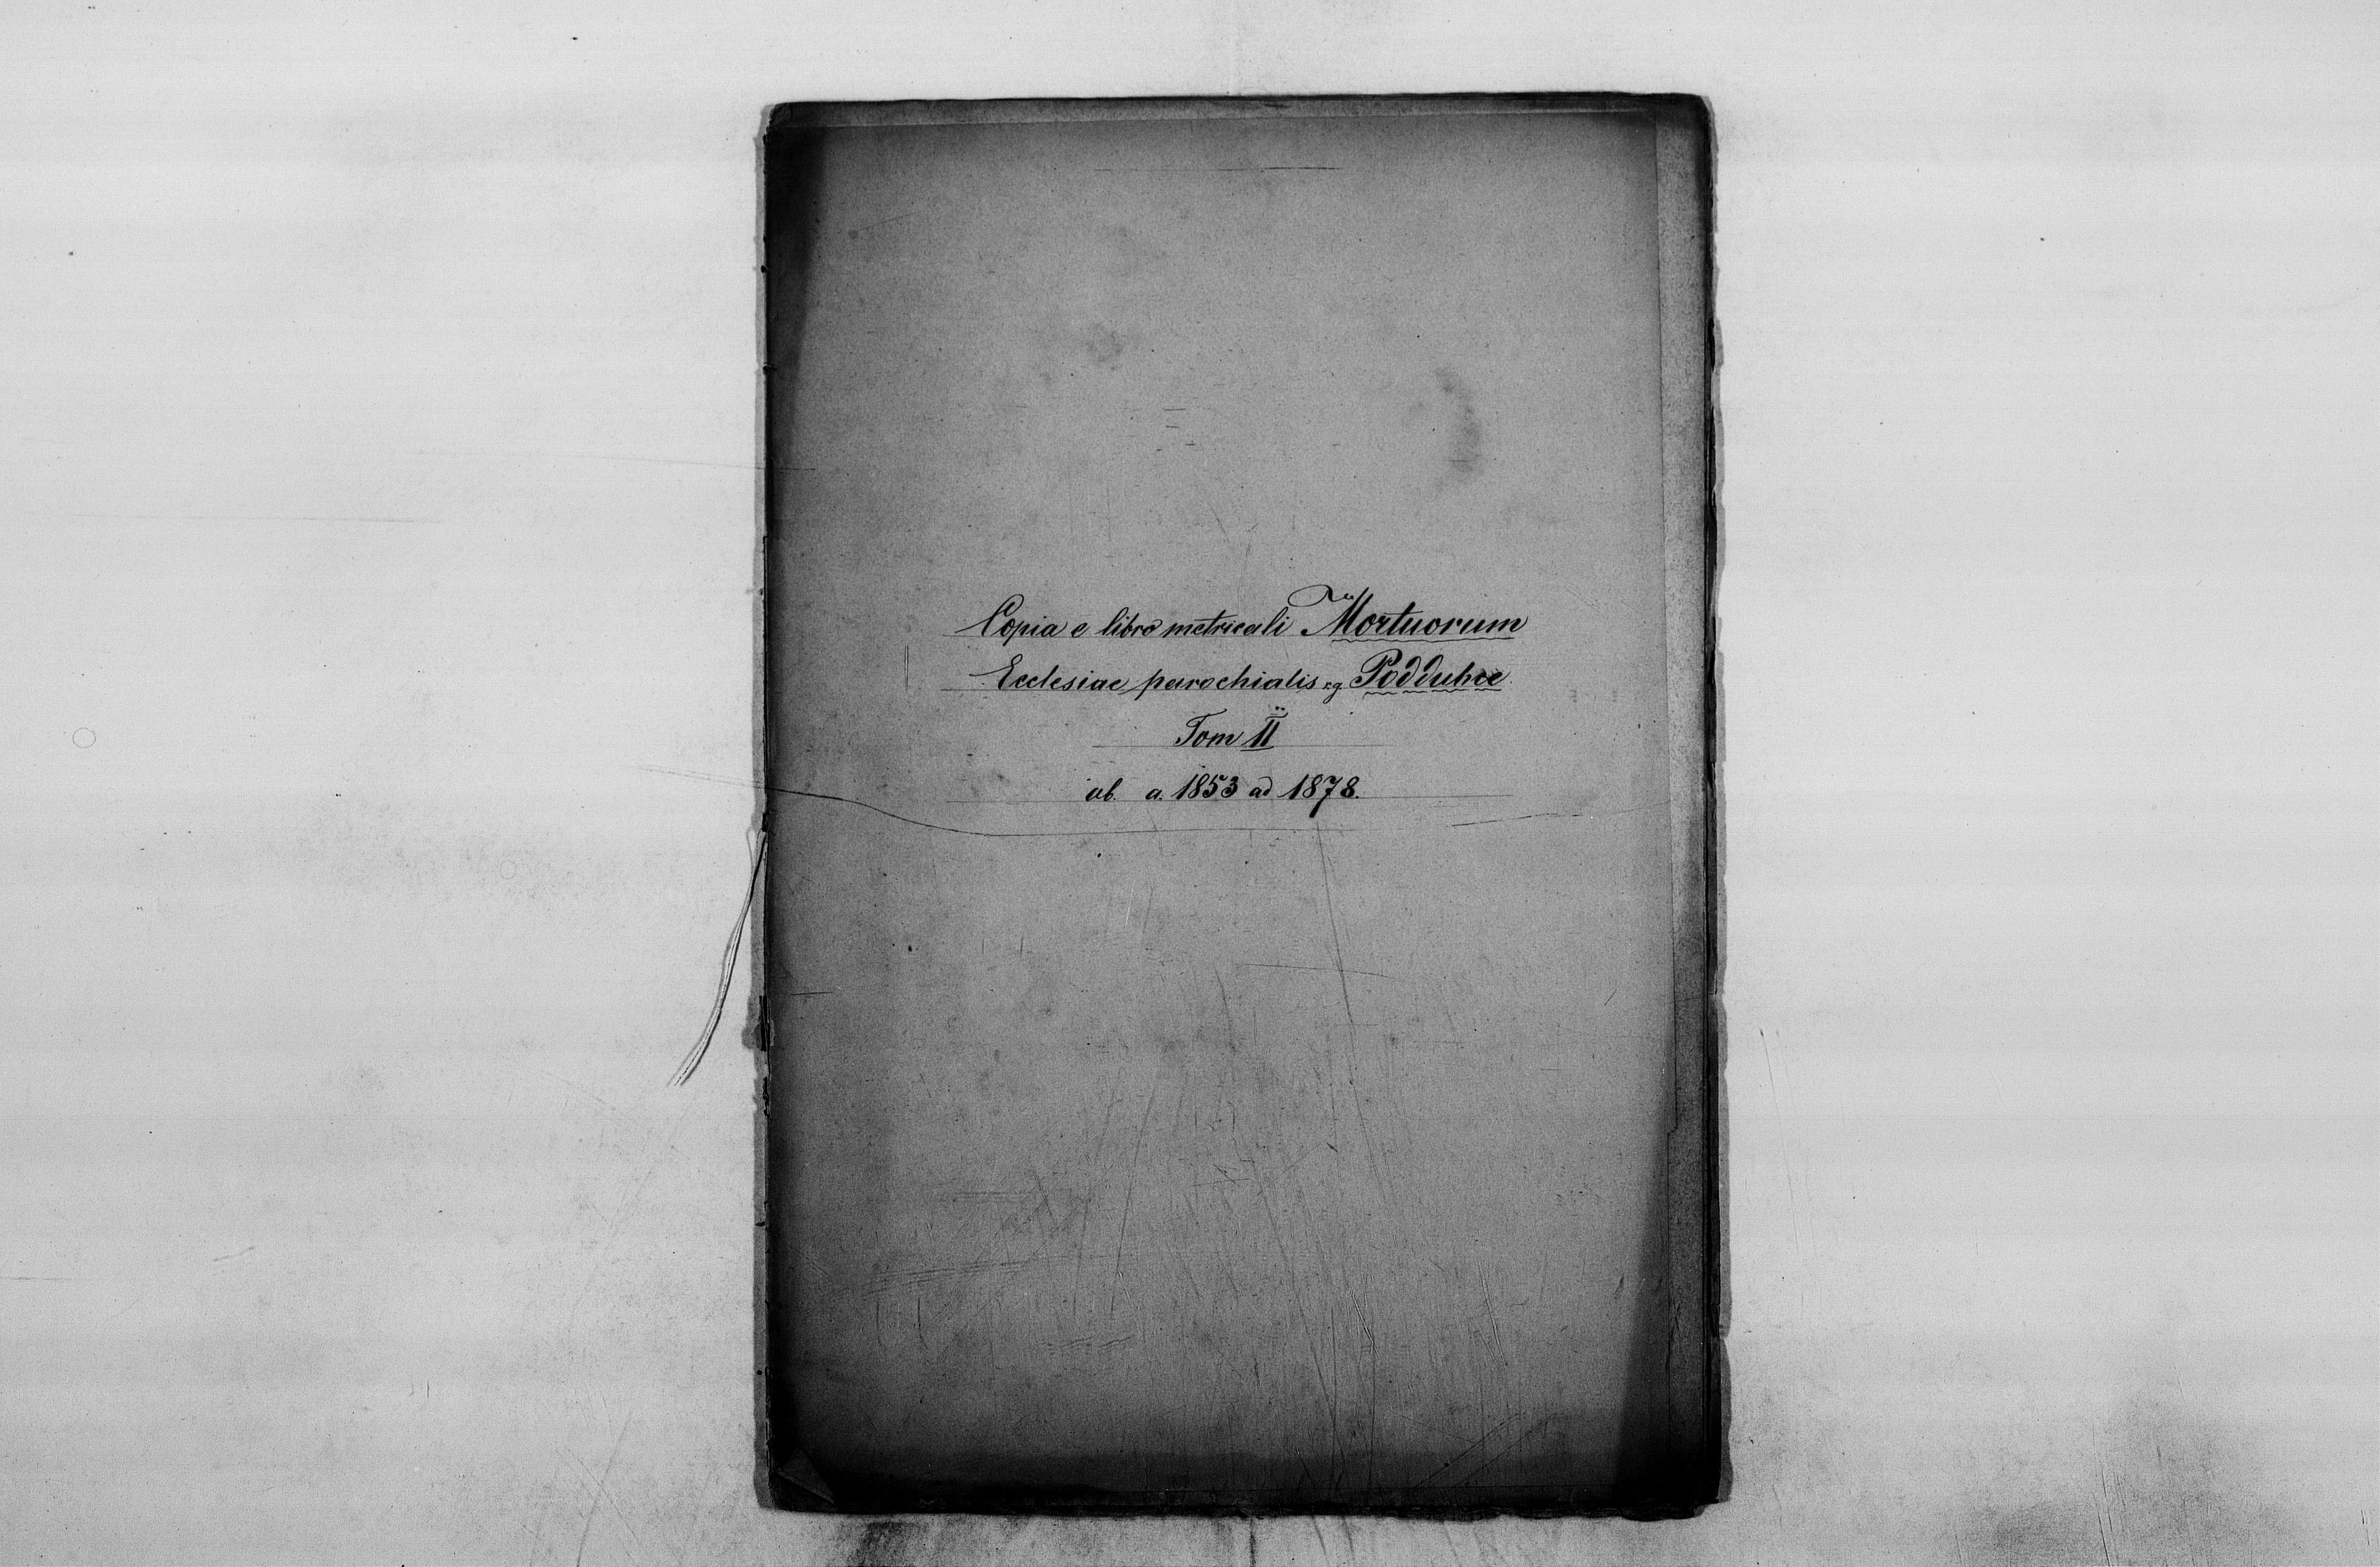 Copia e libro metricali Mortuorum
Ecclesiae parochialis r.g. Poddubce
Tom II
ab. a. 1853 ad 1878.